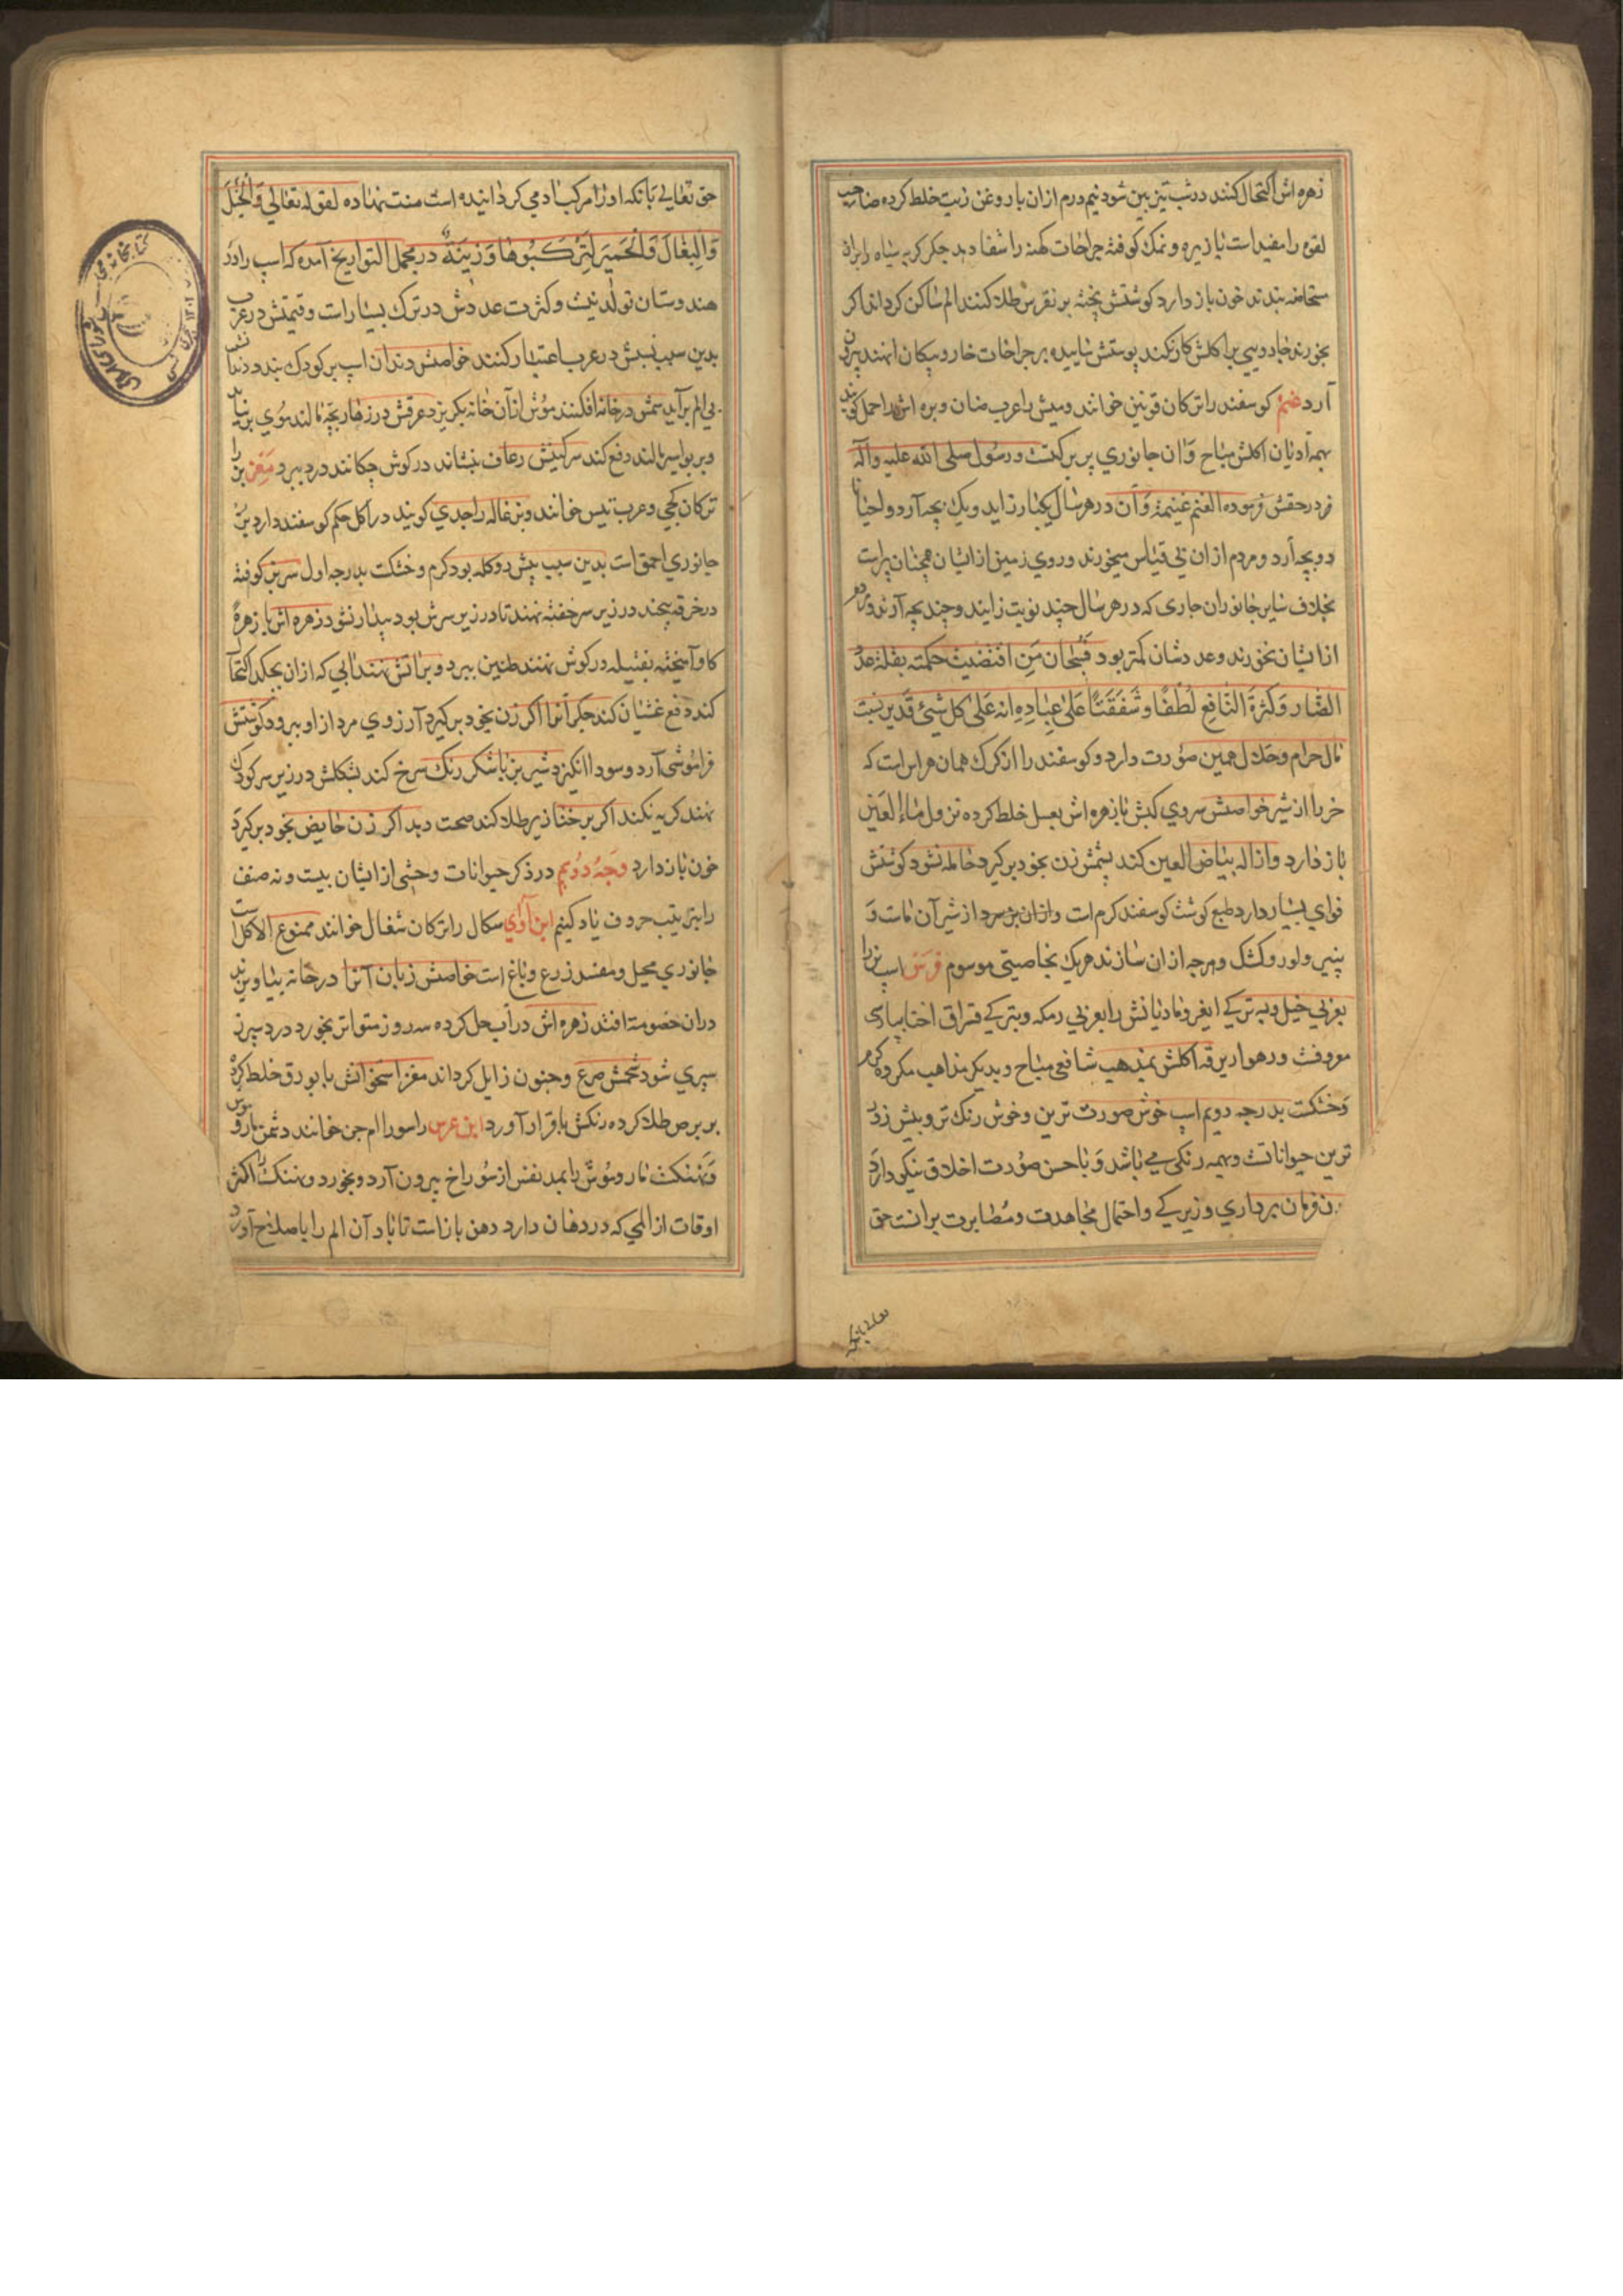 زهره اش اکتحال کنند در شب تیز بین شود نیم درم ازان با روغن زیت خلط کرده صاحب
لقوه را مفید است با زیره و نمک کوفته جراحات کهنه را شفا دهد جکر کربه سیاه را بران
مستحاضه بندند خون باز دارد کوشتش پخته بر نقرس طلا کنند الم ساکن کرداند اکر
بخورند جادویی بر اکلش کار نکند پوستش ساییده بر جراحات خار و پیکان انهند بیرون
آرد غنم کوسفند را ترکان قوینن خوانند و میش را عرب ضان و بره اش را حمل کویند
بهمه ادیان اکلش مباح و آن جانوری پر برکتست و رسول صلی الله علیه وآله
در حقش فرموده الغنم غنیمة و آن در هر سال یکبار زاید و یک بچه آرد و احیانا
دو بچه آرد و مردم ازان بی قیاس میخورند و روی زمین ازیشان همچنان پراست
بخلاف سایر جانوران جاری که در هر سال چند نوبت زایند و چند بچه آرند و مردم
ازیشان نخورند و عددشان کمتر بود فسبحان من اقتضیت حکمته بقلة عدد
الضار وکثرة النافع لطفا وشفقتا علی عباده انه علی کل شیٔ قدیر نسبت
مال حرام و حلال همین صورت دارد و کوسفند را از کرک همان هراس است که
خر را از شیر خواصش سروی کبش با زهره اش بعسل خلط کرده نزول ماء العین
باز دارد و ازاله بیاض العین کند پشمش زن بخود برکیرد حامله نشود کوشتش
فوای بسیار دارد طبع کوشت کوسفند کرم است و ازان بز سرد از شیر آن ماست و
پنیر و لور و کشک و هرچه ازان سازند هریک بخاصیتی موسوم فرس اسب نر را
بعربی خیل و بترکی ایغر و مادیانش را بعربی رمکه و بترکی قسراق اختا بپارسی
معروفست و رهوار یرقه اکلش بمذهب شافعی مباح و بدیکر مذاهب مکروه کرم
و خشکست بدرجه دویم اسب خوش صورت ترین و خوش رنک تر و بیش زور
ترین حیواناتست و بهمه رنکی می باشد و با حسن صورت اخلاق نیکو دارد
فرمان برداری و زیرکی و احتمال مجاهدت و مصابرت برانست حق
تعالی بانکه
حق تعالی بانکه او را مرکب آدمی کردانیده است منت نهاده لقوله تعالی والخیل
والبغال والحمیر لترکبوها وزینة در مجمل التواریخ آمده که اسب را در
هندوستان تولد نیست و کثرت عددش در ترک بسیار است و قیمتش در عرب
بدین سبب نسبش در عرب اعتبار کنند خواصش دندان اسب بر کودک بندند دندانش
بی الم برآید سمش در خانه افکنند موش ازآن خانه بکریزد عرقش در زهار بچه مالند موی بر نیاید
و بر بواسیر مالند دفع کند سرکینش رعاف بنشاند در کوش چکانند درد ببرد معز بز را
ترکان کجی و عرب تیس خوانند و بزغاله را جدی کویند در اکل حکم کوسفند دارد بز
جانوری احمق است بدین سبب پیش رو کله بود کرم و خشکست بدرجه اول سر بز کوفته
در خرقه پیچند در زیر سر خفته نهند تا در زیر سرش بود بیدار نشود زهره اش با زهره
کاو آمیخته بفتیله در کوش نهند طنین ببرد و بر آتش نهند آبی که ازان بچکد اکتحال
کنند دفع غشیان کند جکر آنرا اکر زن بخود برکیرد آرزوی مرد از او ببرود کوشتش
فراموشی آرد و سودا انکیزد شیر بز با شکر رنک سرخ کند بشکلش در زیر سر کودک
نهند کریه نکند اکر بر خنازیر طلا کند صحت دهد اکر زن حایض بخود برکیرد
خون باز دارد وجه دویم در ذکر حیوانات وحشی ازیشان بیست و نه صنف
را بترتیب حروف یاد کنیم ابن آوی سکال را ترکان شغال خوانند ممنوع الاکل است
جانوری محیل و مفسد زرع و باغ است خواصش زبان آنرا در خانه بیاویزند
دران خصومة افتد زهره اش در آب حل کرده سه روز متواتر بخورد درد سپرز
سپری شود شحمش صرع و جنون زایل کرداند مغز استخوانش با بورق خلط کرده
بر برص طلا کرده رنکش باقرار آورد ابن عرس راسو را ام جن خوانند دشمن مار و موش
و نهنکست مار و موش را بمد نفس از سوراخ بیرون آرد و بخورد و نهنک را اکثر
اوقات از المی که در دهان دارد دهن باز است تا باد آن الم را باصلاح آورد